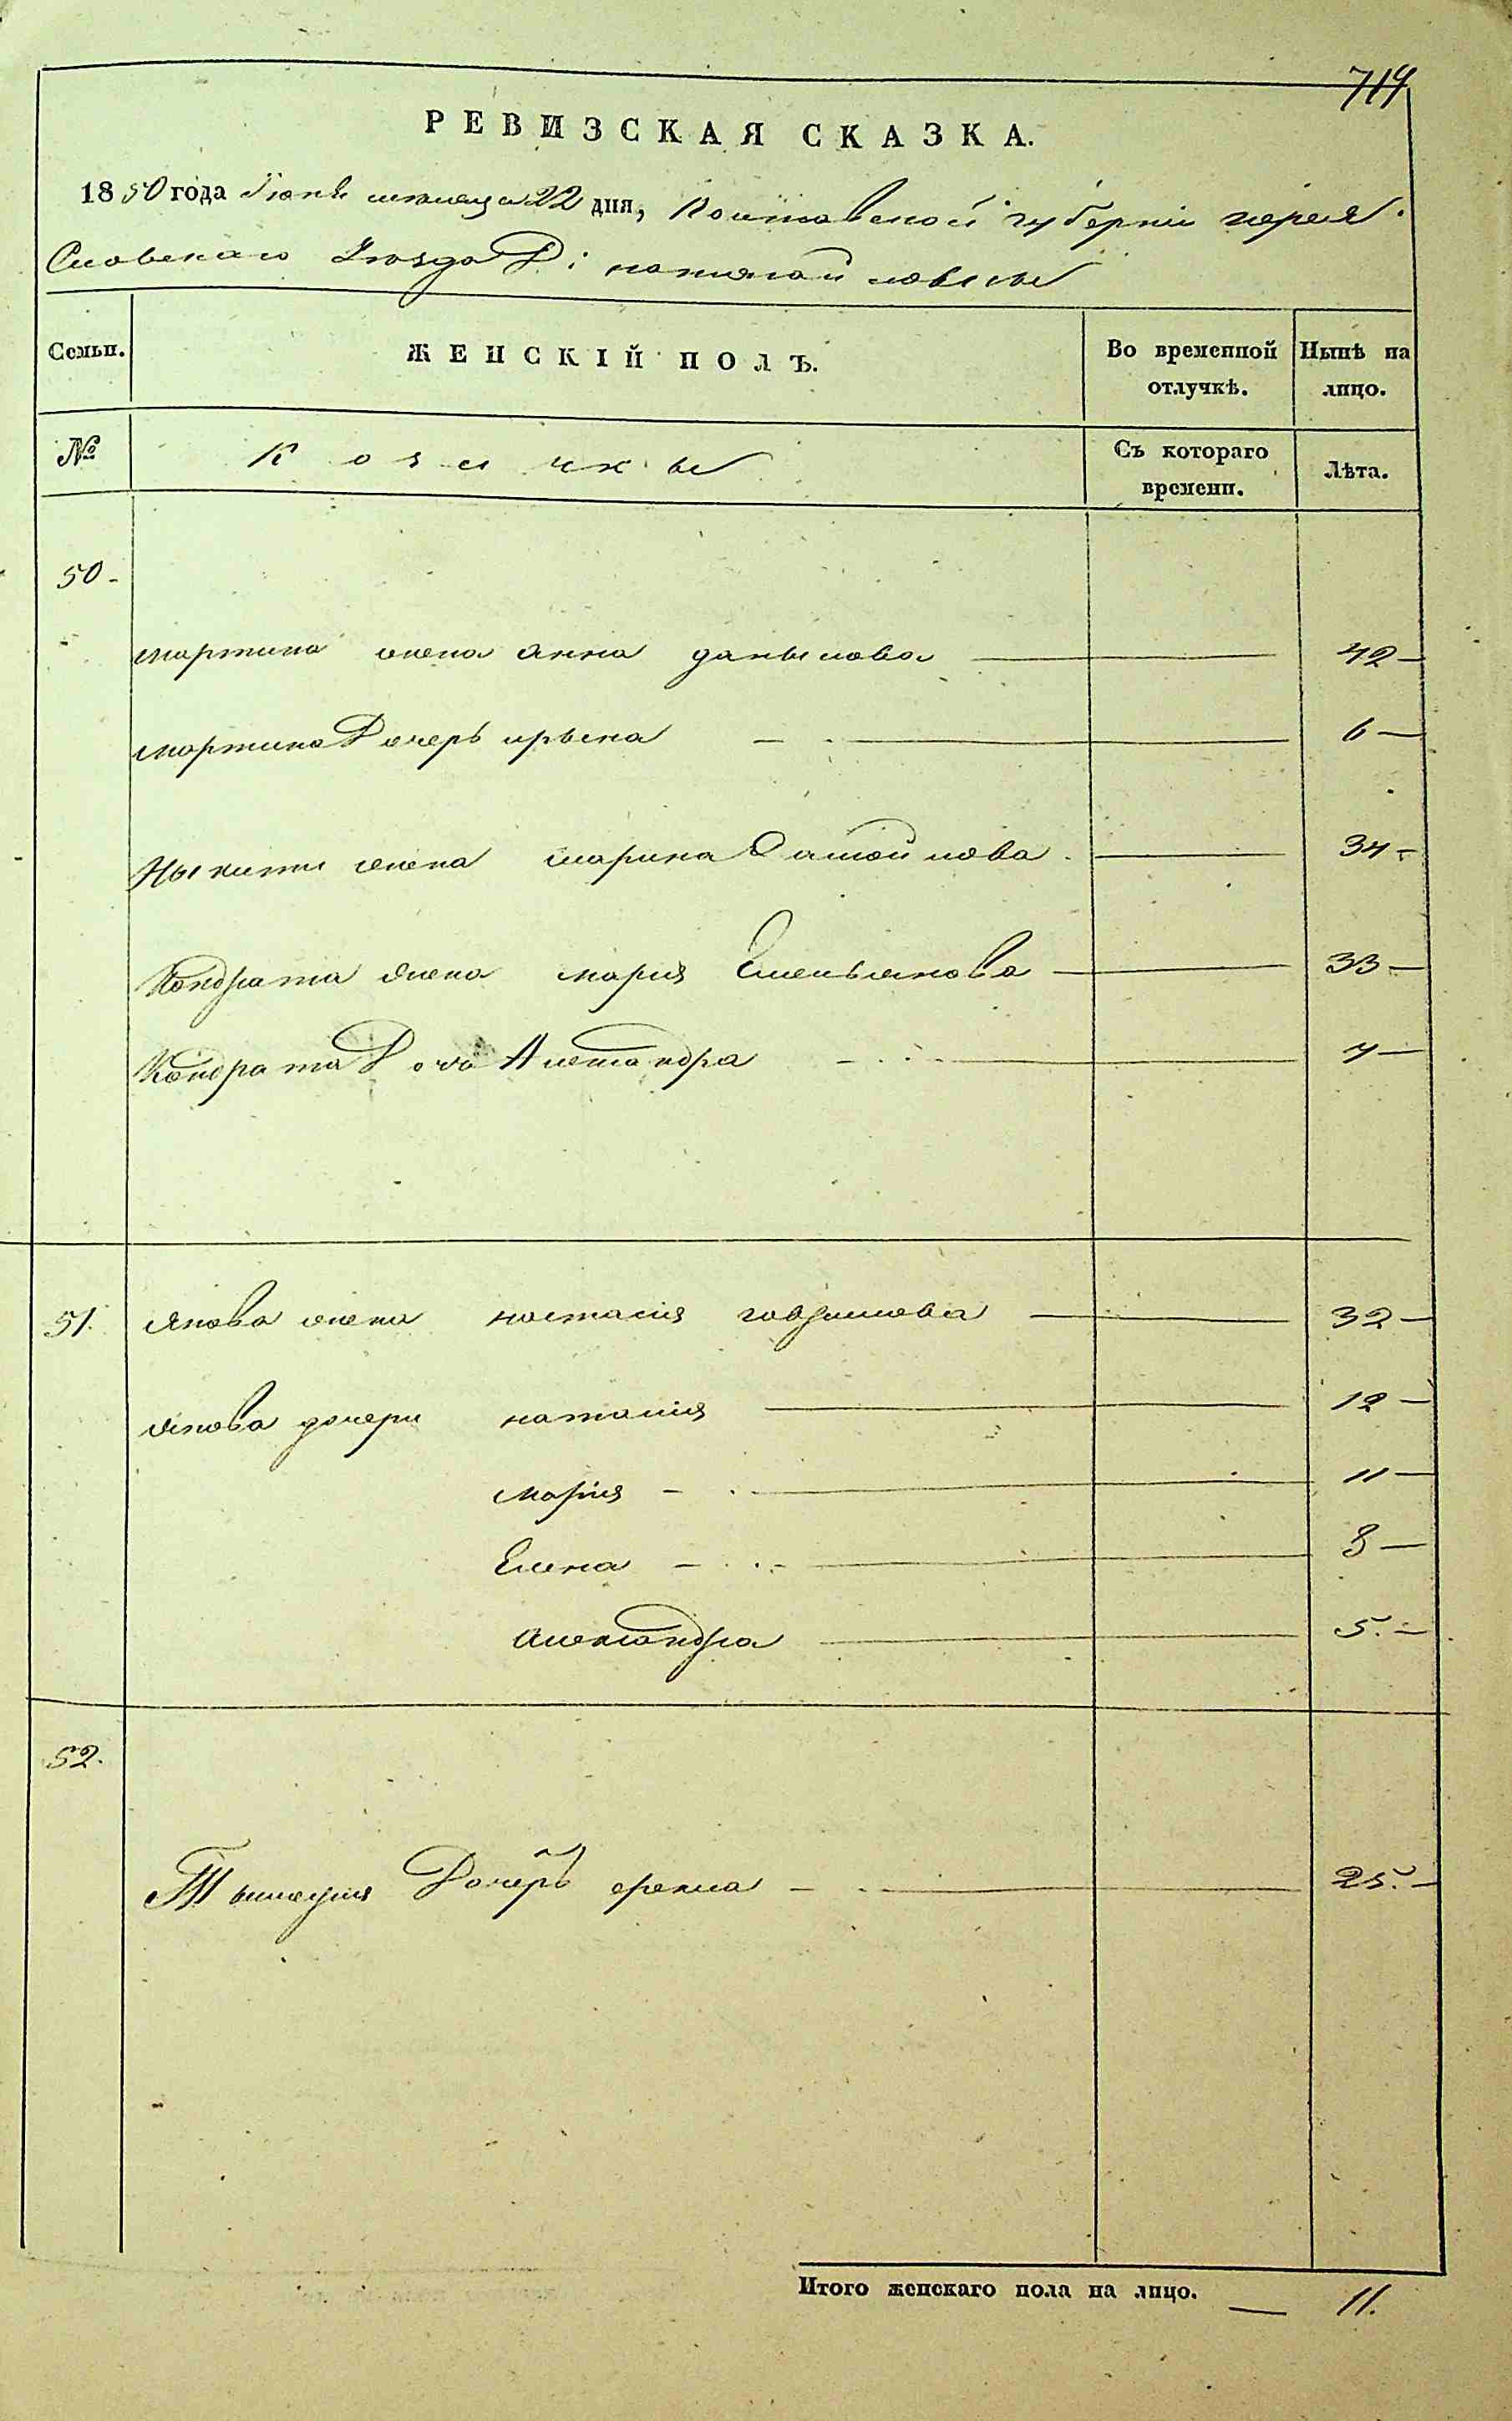 719
РЕВИЗСКАЯ СКАЗКА.
1850 года Іюня месяца 22 дня, Полтавской губерніи переяс
Словскаго уезда Д:
Семьи.
ЖЕНСКІЙ ПОЛЪ.
Во временной отлучкѣ.
Нынѣ на лицо.
№
Козачки
Съ котораго времени.
Лѣта.
50-
мартина жена анна данылова — 42-
мартина Дочерь ирына — 6-
Ныкиты жена марина Самойлова. — 34-
Кондрата жена мария Емельянова — 33-
Кондрата Дочь Александра —
51. якова жена настасия гаврилова — 32-
якова дочери наталия — 12-
Мария — 11-
Елена — 8-
александра — 5.-
52.
Дочерь фекла — 25.-
Итого женскаго пола на лицо. — 11.